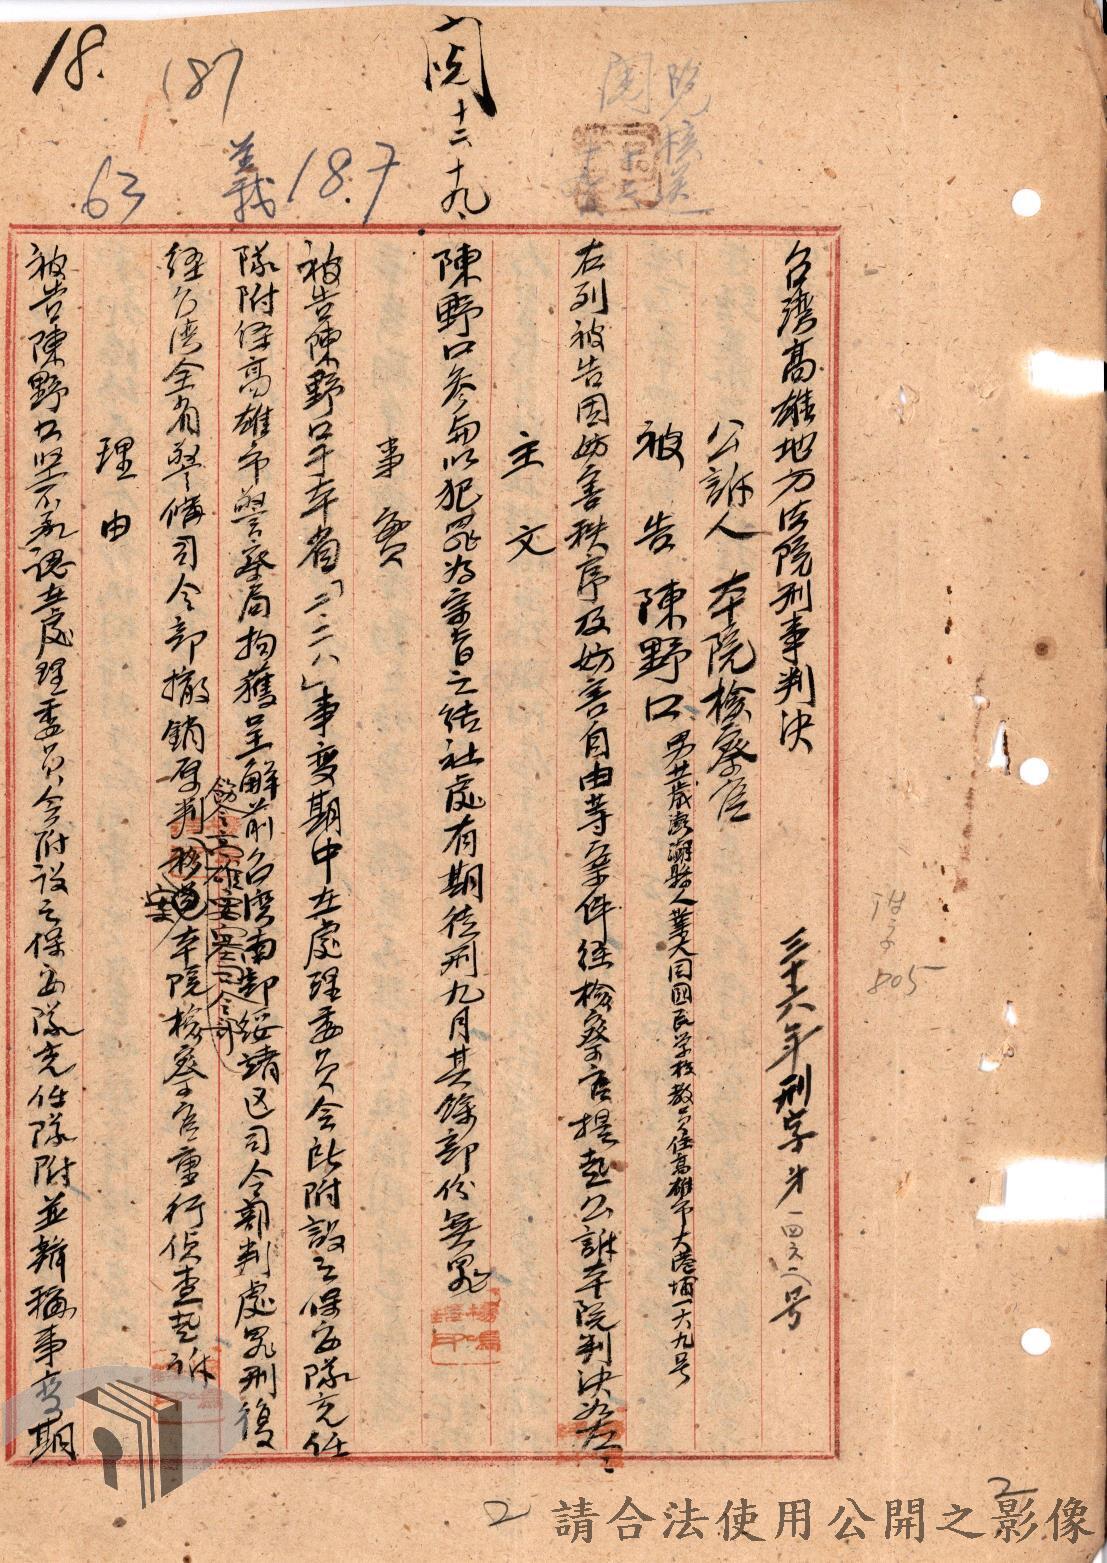 18.
187
63
義
18.7
閱
十二、十九、
台灣高雄地方法院刑事判決
三十六年刑字第一四六二号
公訴人 本院檢察官
被告 陳野口 男廿歲澎湖縣人業大同國民学校教員住高雄市大港埔一六九号
右列被告因妨害秩序及妨害自由等案件経檢察官提起公訴本院判決如左、
主文
陳野口參與以犯罪為宗旨之結社處有期徒刑九月其餘部份無罪
事實
被告陳野口于本省「二二八」事变期中在處理委員会所附設之保安隊充任
隊附経高雄市警察局拘獲呈解前台灣南部綏靖区司令部判處罪刑復
経台灣全省警備司令部撤銷原判飭令高雄要塞司令部移送本院檢察官重行偵查起訴
理由
被告陳野口堅不承認在處理委員会附設之保安隊充任隊附並辯稱事变期
805
2
2
請合法使用公開之影像